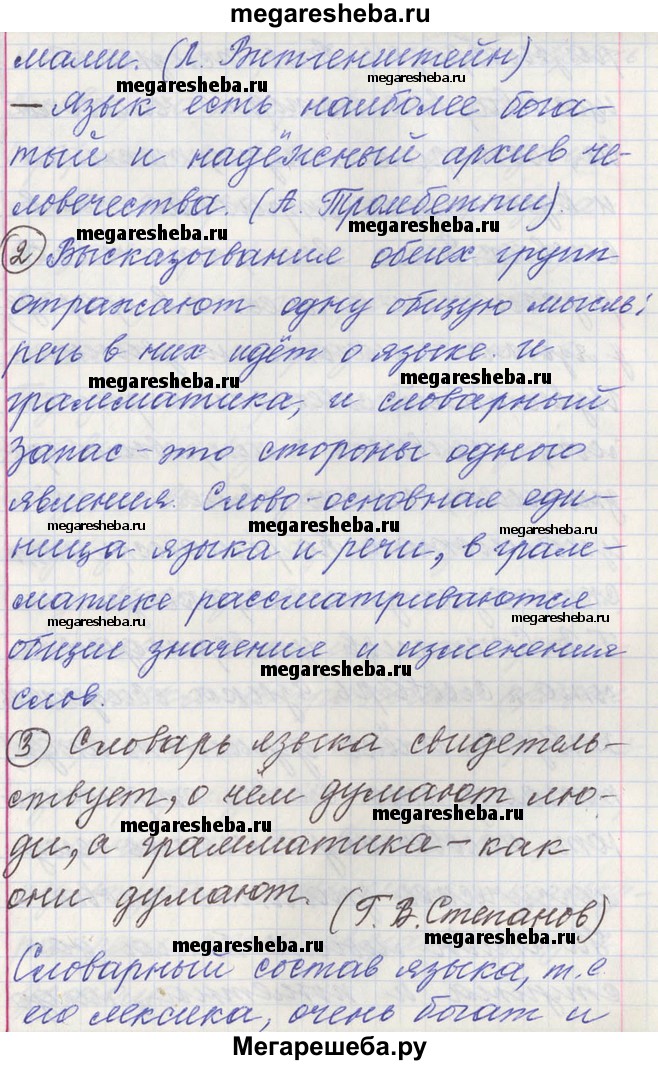 megaresheba.ru
мами. (Л. Витгенштейн)
megaresheba.ru megaresheba.ru
— Язык есть наиболее бога-
тый и надёжный архив че-
ловечества. (А. Тромбетти).
megaresheba.ru megaresheba.ru
2 Высказывания обеих групп
отражают одну общую мысль:
речь в них идёт о языке. И
megaresheba.ru megaresheba.ru
грамматика, и словарный
запас - это стороны одного
явления. Слово - основная еди-
megaresheba.ru megaresheba.ru megaresheba.ru
ница языка и речи, в грам-
матике рассматриваются
megaresheba.ru megaresheba.ru
общие значения и изменения
megaresheba.ru
слов.
3 Словарь языка свидетель-
ствует, о чём думают лю-
megaresheba.ru megaresheba.ru
ди, а грамматика - как
они думают. (Г. В. Степанов)
megaresheba.ru megaresheba.ru
Словарный состав языка, т.е.
его лексика, очень богат и
Мегарешеба.ру